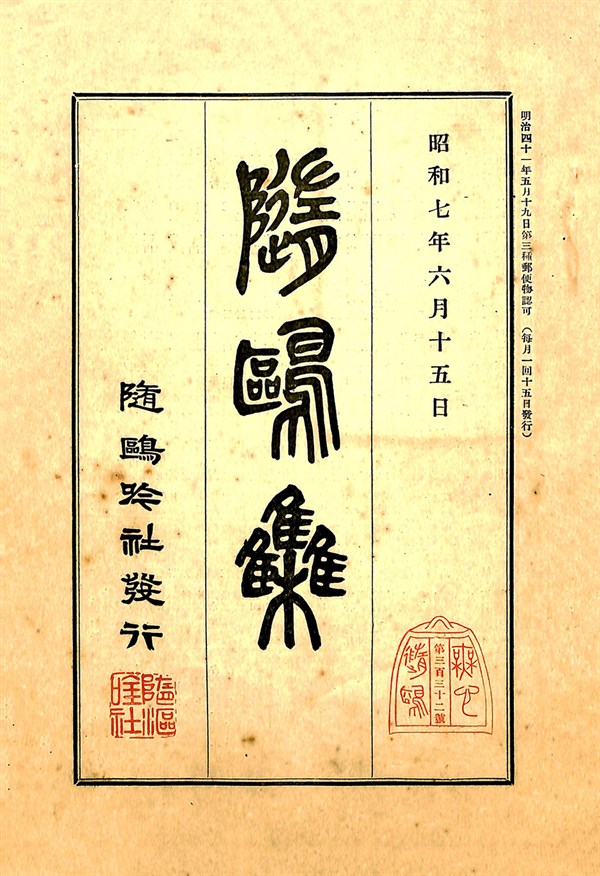 明治四十一年五月十九日第三種郵便物認可（每月一回十五日發行）
昭和七年六月十五日
第三百三十二號
隨鷗集
隨鷗吟社發行